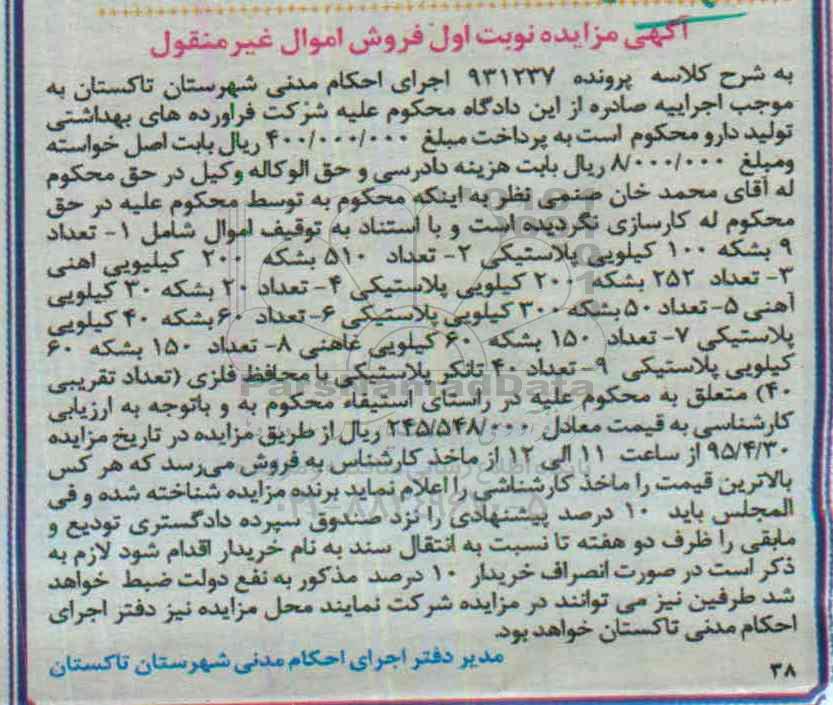 آگهی مزایده نوبت اول فروش اموال غیر منقول
به شرح کلاسه پرونده ۹۳۱۲۳۷ اجرای احکام مدنی شهرستان تاکستان به
موجب اجراییه صادره از این دادگاه محکوم علیه شرکت فراورده های بهداشتی
تولید دارو محکوم است به پرداخت مبلغ ۴۰۰/۰۰۰/۰۰۰ ریال بابت اصل خواسته
ومبلغ ۸/۰۰۰/۰۰۰ ریال بابت هزینه دادرسی و حق الوکاله وکیل در حق محکوم
له آقای محمد خان صنمی نظر به اینکه محکوم به توسط محکوم علیه در حق
محکوم له کارسازی نگردیده است و با استناد به توقیف اموال شامل ۱- تعداد
۹ بشکه ۱۰۰ کیلویی پلاستیکی ۲- تعداد ۵۱۰ بشکه ۲۰۰ کیلیویی اهنی
۳- تعداد ۲۵۲ بشکه ۲۰۰ کیلویی پلاستیکی ۴- تعداد ۲۰ بشکه ۳۰ کیلویی
آهنی ۵- تعداد ۵۰ بشکه ۳۰۰ کیلویی پلاستیکی ۶- تعداد ۶۰ بشکه ۴۰ کیلویی
پلاستیکی ۷- تعداد ۱۵۰ بشکه ۶۰ کیلویی غاهنی ۸- تعداد ۱۵۰ بشکه ۶۰
کیلویی پلاستیکی ۹- تعداد ۴۰ تانکر پلاستیکی با محافظ فلزی (تعداد تقریبی
۴۰) متعلق به محکوم علیه در راستای استیفاء محکوم به و باتوجه به ارزیابی
کارشناسی به قیمت معادل ۲۴۵/۵۴۸/۰۰۰ ریال از طریق مزایده در تاریخ مزایده
۹۵/۴/۳۰ از ساعت ۱۱ الی ۱۲ از ماخذ کارشناس به فروش می‌رسد که هر کس
بالاترین قیمت را ماخذ کارشناشی را اعلام نماید برنده مزایده شناخته شده و فی
المجلس باید ۱۰ درصد پیشنهادی را نزد صندوق سپرده دادگستری تودیع و
مابقی را ظرف دو هفته تا نسبت به انتقال سند به نام خریدار اقدام شود لازم به
ذکر است در صورت انصراف خریدار ۱۰ درصد مذکور به نفع دولت ضبط خواهد
شد طرفین نیز می توانند در مزایده شرکت نمایند محل مزایده نیز دفتر اجرای
احکام مدنی تاکستان خواهد بود.
مدیر دفتر اجرای احکام مدنی شهرستان تاکستان
۳۸
ParsNamadData